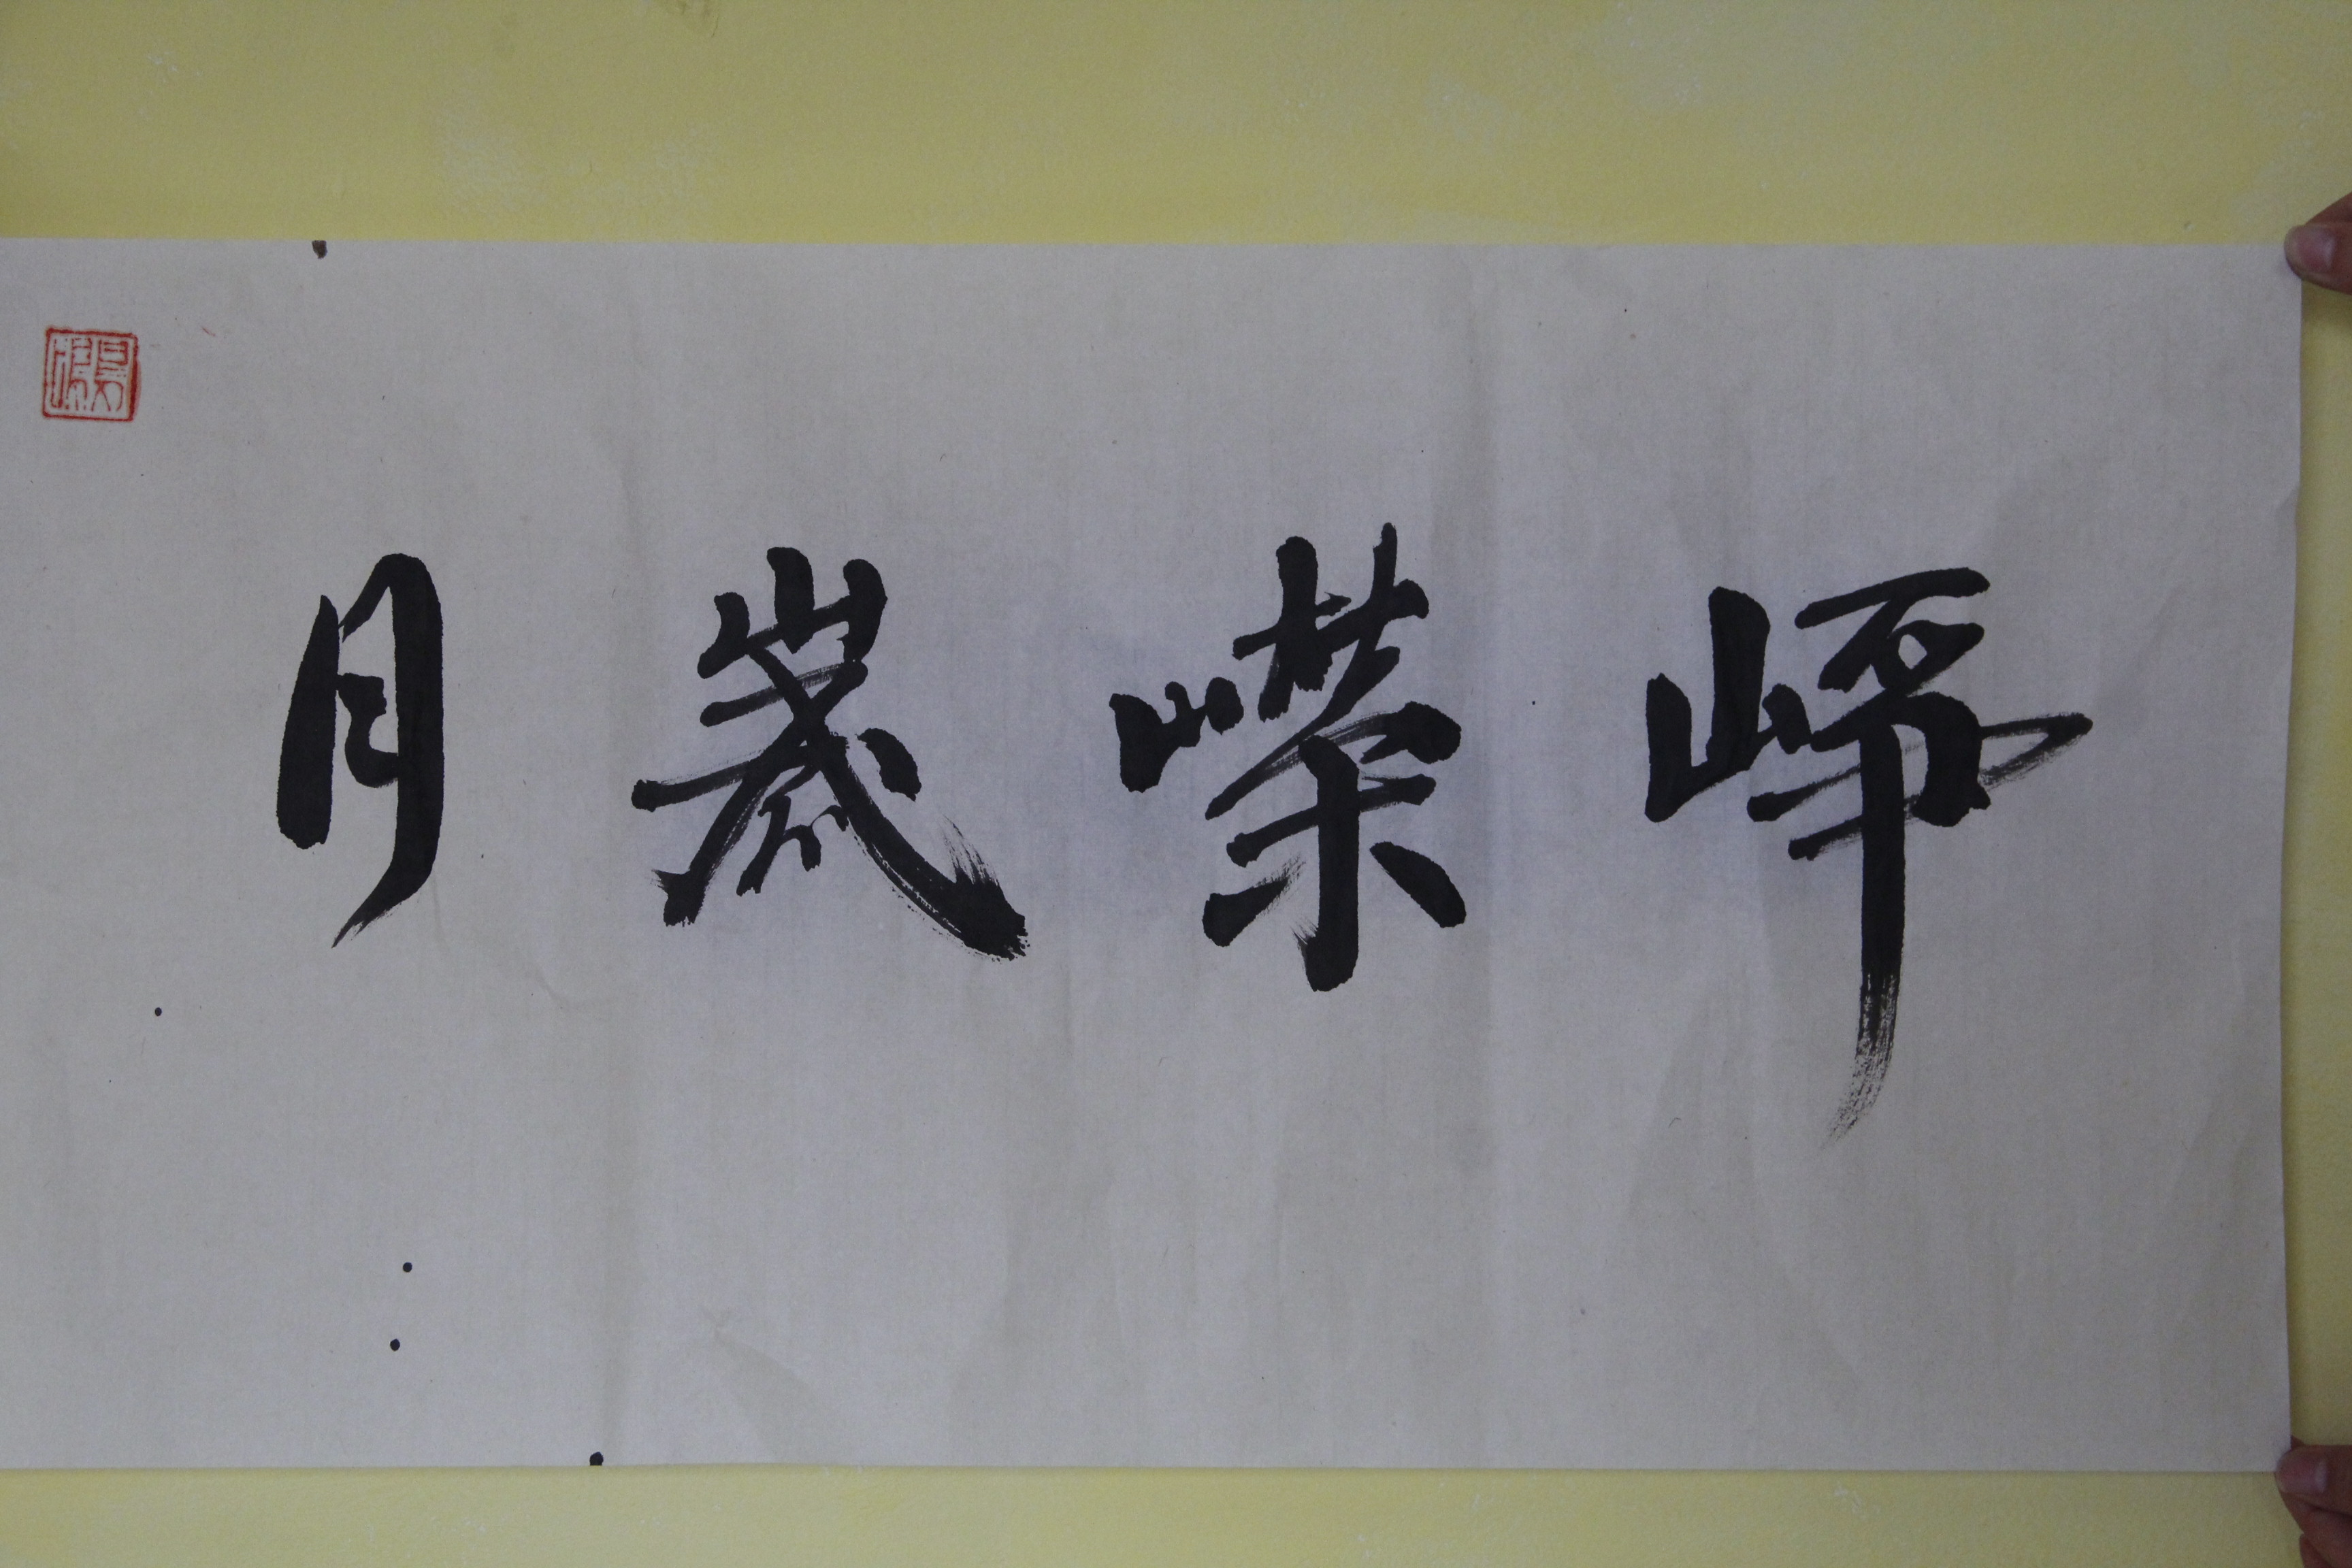 崢嶸歲月